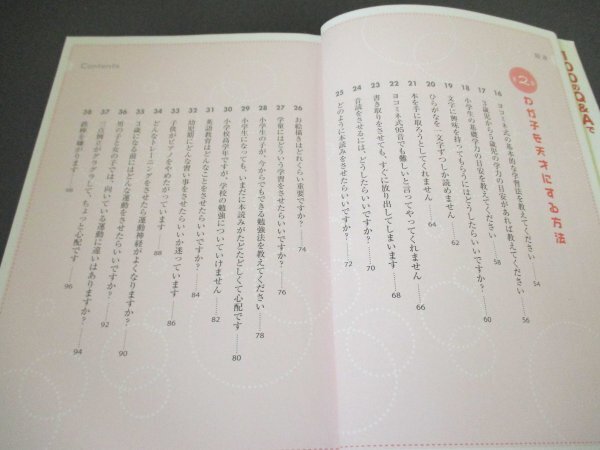 100のQ&Aで
目次
第2章 わが子を天才にする方法
16 ヨコミネ式の基本的な学習法を教えてください …… 54
17 3歳児から5歳児の学力の目安があれば教えてください …… 56
18 小学生の基礎学力の目安を教えてください …… 58
19 文字に興味を持ってもらうにはどうしたらいいですか? …… 60
20 ひらがなを一文字ずつしか読めません …… 62
21 本を手に取ろうとしてくれません …… 64
22 ヨコミネ式95音でも難しいと言ってやってくれません …… 66
23 書き取りをさせても、すぐに放り出してしまいます …… 68
24 音読をさせるには、どうしたらいいですか? …… 70
25 どのように本読みをさせたらいいですか? …… 72
Contents
26 お絵描きはどれくらい重要ですか? …… 74
27 学童にはどういう学習をさせたらいいですか? …… 76
28 小学生の子が、今からでもできる勉強法を教えてください …… 78
29 小学生になっても、いまだに本読みがたどたどしくて心配です …… 80
30 小学校高学年ですが、学校の勉強についていけません …… 82
31 英語教育はどんなことをさせたらいいですか? …… 84
32 幼児期にどんな習い事をさせたらいいか迷っています …… 86
33 子供がピアノをやめたがっています …… 88
34 どんなトレーニングをさせたら運動神経がよくなりますか? …… 90
35 3歳になる前にはどんな運動をさせたらいいですか? …… 92
36 男の子と女の子では、向いている運動に違いはありますか? …… 94
37 三点倒立がグラグラして、ちょっと心配です …… 96
38 鉄棒を嫌がります …… 98